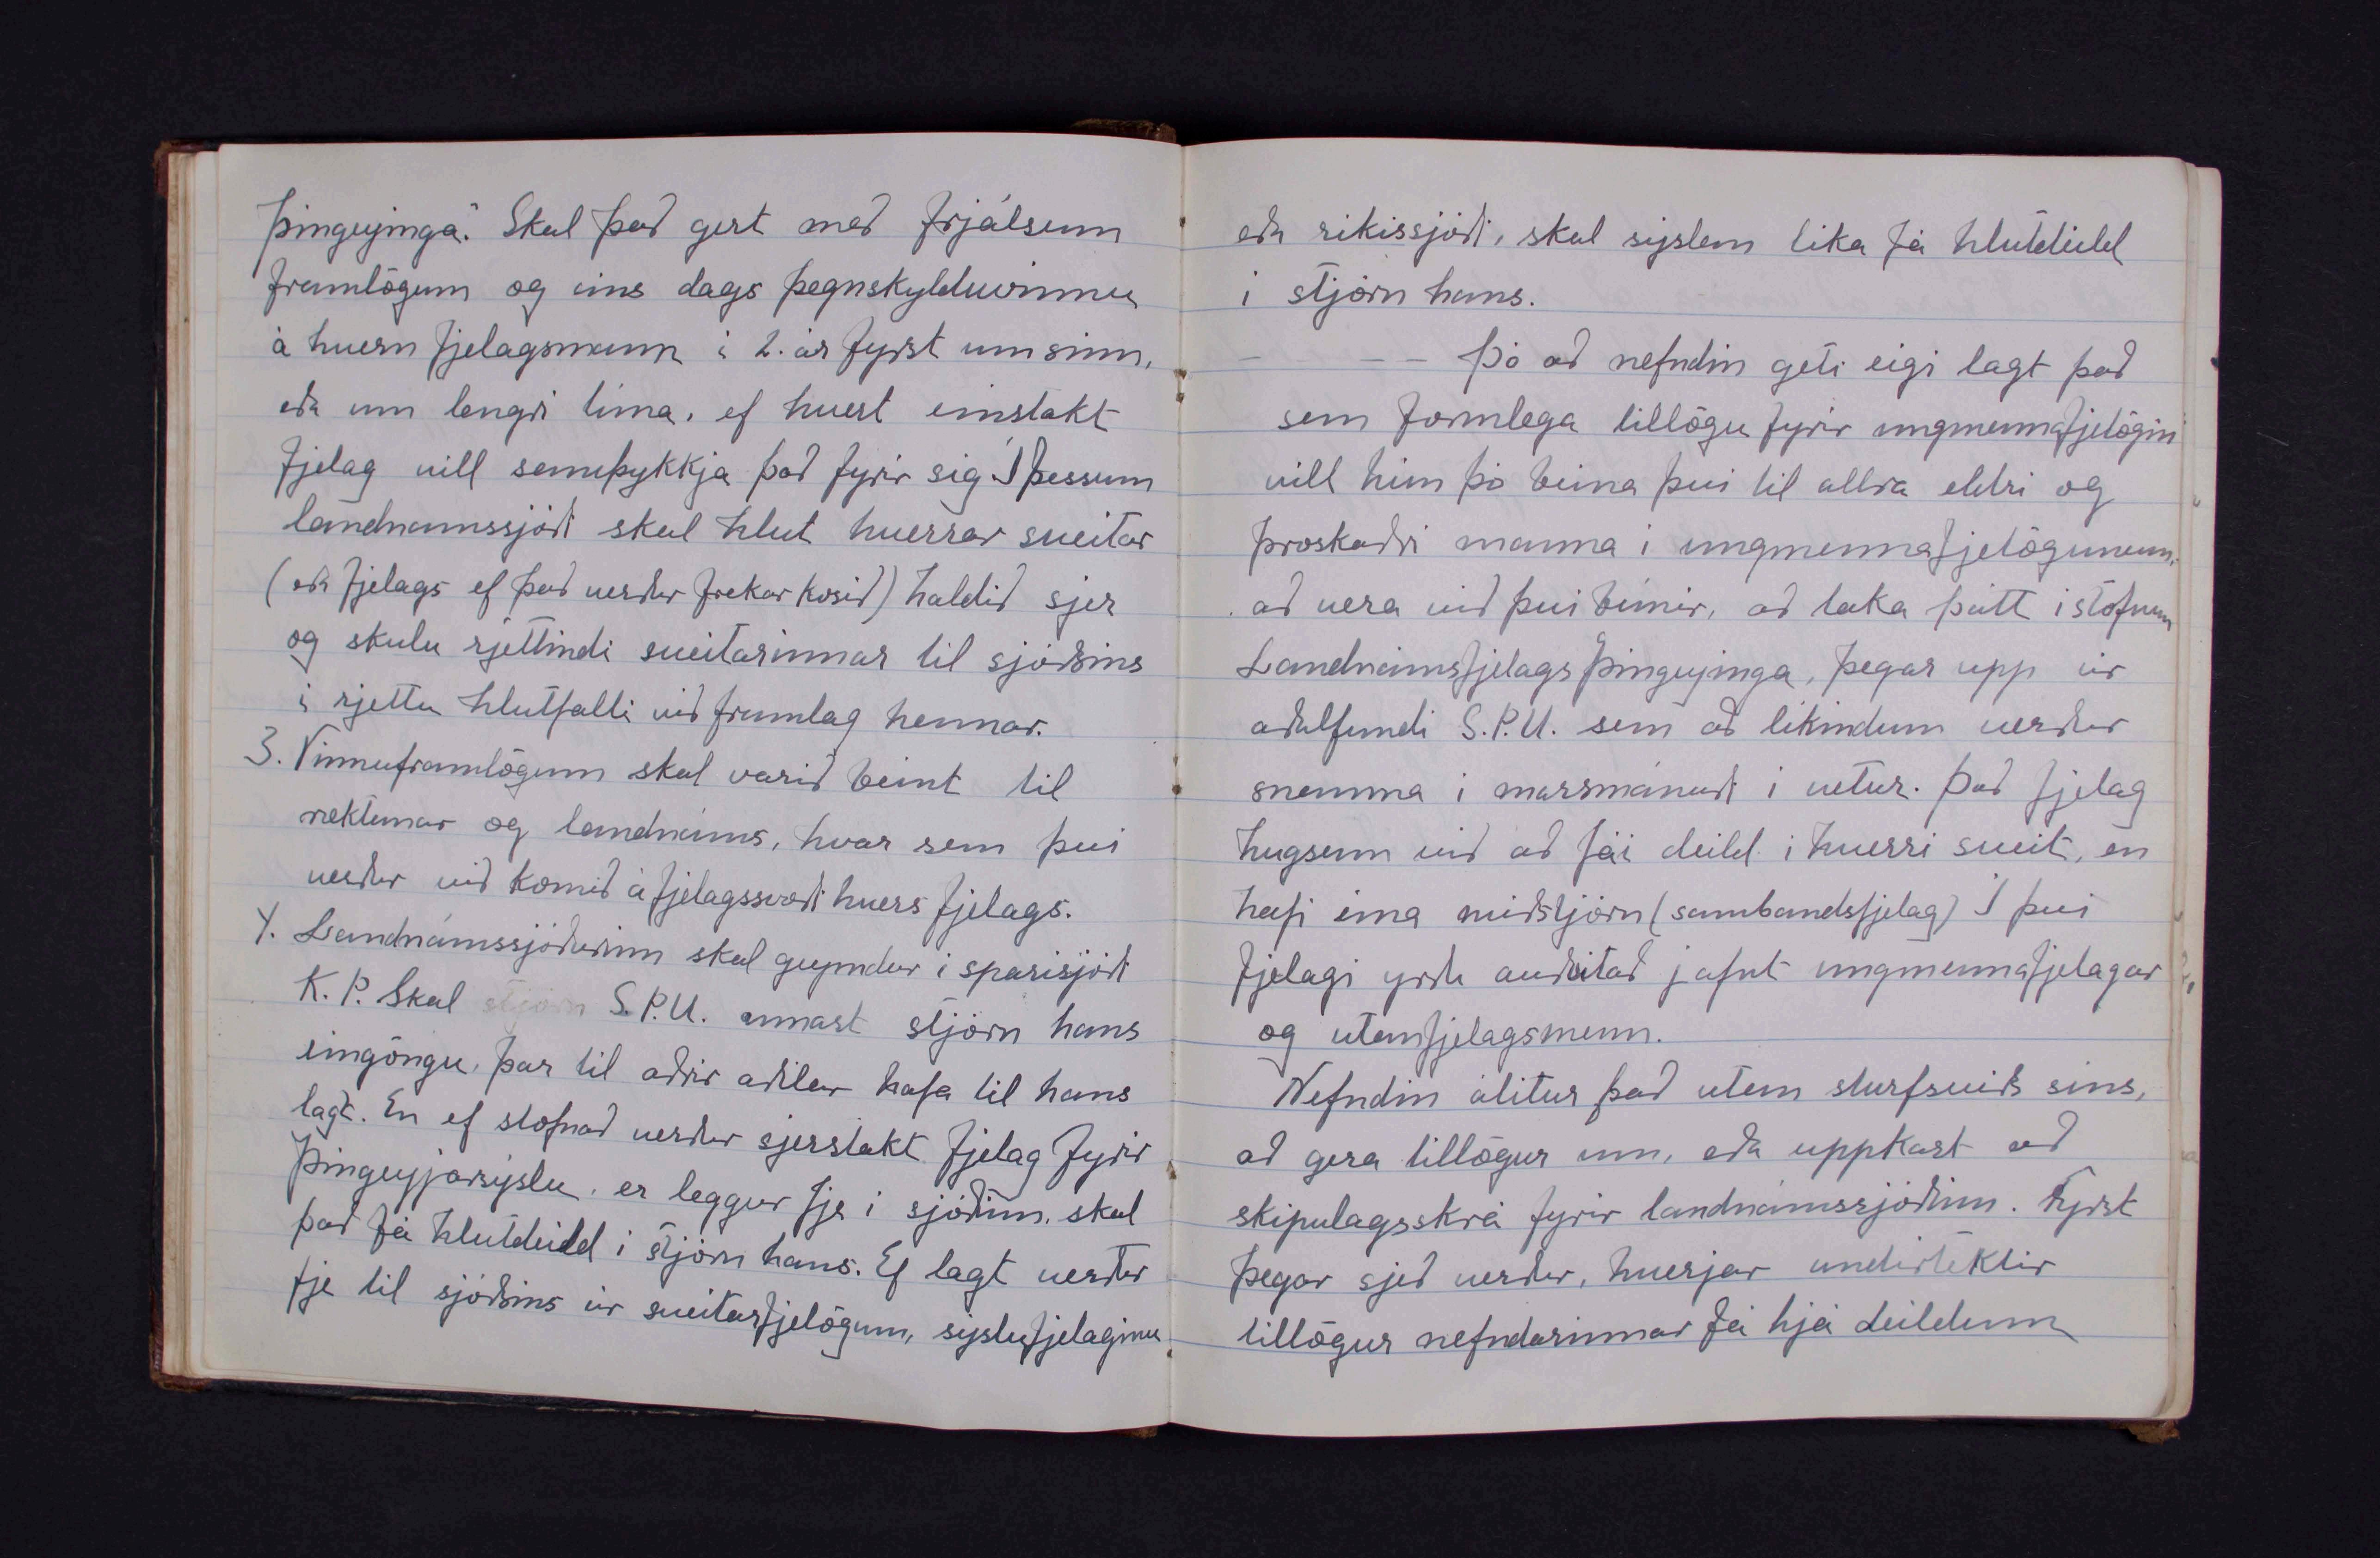 Þingeyinga". Skal það gert með frjálsum
framlögum og eins dags þegnskylduvinnu
á hvern fjelagsmann í 2. ár fyrst um sinn,
eða um lengri tíma, ef hvert einstakt
fjelag vill samþykkja það fyrir sig. Í þessum
landnámssjóði skal hlut hverrar sveitar
(eða fjelags ef það verður frekar kosið) haldið sjer
og skulu rjettindi sveitarinnar til sjóðsins
í rjettu hlutfalli við framlag hennar.
3. Vinnuframlögum skal varið beint til
ræktunar og landnáms, hvar sem því
verður við komið á fjelagssvæði hvers fjelags.
4. Landnámssjóðurinn skal geymdur í sparisjóði
K. Þ. Skal stjórn S.Þ.U. annast stjórn hans
eingöngu, þar til aðrir aðilar hafa til hans
lagt. En ef stofnað verður sjerstakt fjelag fyrir
Þingeyjarsýslu, er leggur fje í sjóðinn, skal
það fá hlutdeild í stjórn hans. Ef lagt verður
fje til sjóðsins úr sveitarfjelögum, sýslufjelaginu
eða ríkissjóði, skal sýslan líka fá hlutdeild
í stjórn hans.
- - - Þó að nefndin geti eigi lagt það
sem formlega tillögu fyrir ungmennafjelögin
vill hún þó beina því til allra eldri og
þroskaðri manna í ungmennafjelögunum,
að vera við því búnir, að taka þátt í stofnun
Landnámsfjelags Þingeyinga, þegar upp úr
aðalfundi S.Þ.U. sem að líkindum verður
snemma í marsmánuði í vetur. Það fjelag
hugsum við að fái deild í hverri sveit, en
hafi eina miðstjórn (sambandsfjelag) Í því
fjelagi yrðu auðvitað jafnt ungmennafjelagar
og utanfjelagsmenn.
Nefndin álítur það utan starfsviðs síns,
að gera tillögur um, eða uppkast að
skipulagsskrá fyrir landnámssjóðinn. Fyrst
þegar sjeð verður, hverjar undirtektir
tillögur nefndarinnar fá hjá deildum